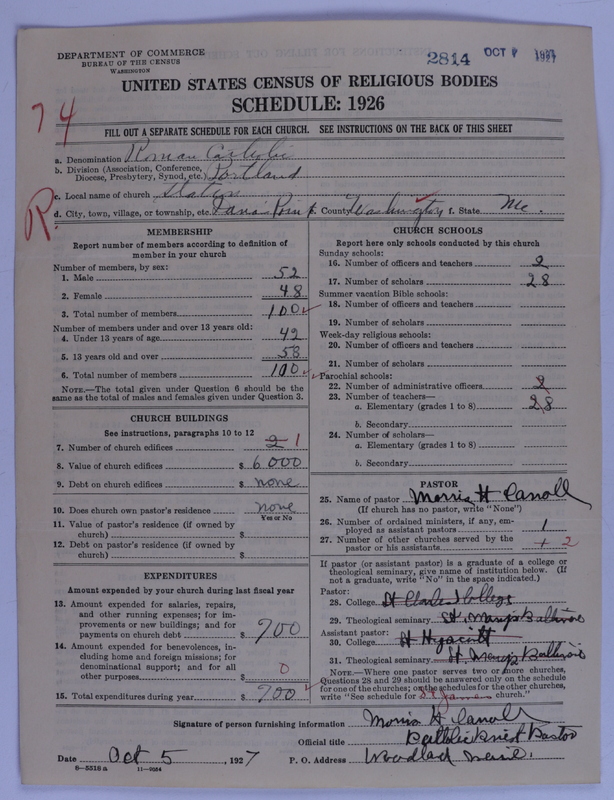 DEPARTMENT OF COMMERCE
BUREAU OF THE CENSUS
WASHINGTON
2814 OCT 7 1927
UNITED STATES CENSUS OF RELIGIOUS BODIES
SCHEDULE: 1926
74
FILL OUT A SEPARATE SCHEDULE FOR EACH CHURCH. SEE INSTRUCTIONS ON THE BACK OF THIS SHEET
a. Denomination Roman Catholic
b. Division (Association, Conference, Diocese, Presbytery, Synod, etc.) Portland
c. Local name of church Station
R
d. City, town, village, or township, etc. e. County Washington f. State Me.
MEMBERSHIP
Report number of members according to definition of
member in your church
Number of members, by sex:
1. Male 52
2. Female 48
3. Total number of members 100
Number of members under and over 13 years old:
4. Under 13 years of age 42
5. 13 years old and over 58
6. Total number of members 100
NOTE.—The total given under Question 6 should be the
same as the total of males and females given under Question 3.
CHURCH BUILDINGS
See instructions, paragraphs 10 to 12
7. Number of church edifices 2 1
8. Value of church edifices $ 6000
9. Debt on church edifices $ none
10. Does church own pastor's residence none
Yes or No
11. Value of pastor's residence (if owned by
church) $
12. Debt on pastor's residence (if owned by
church) $
EXPENDITURES
Amount expended by your church during last fiscal year
13. Amount expended for salaries, repairs,
and other running expenses; for im-
provements or new buildings; and for
payments on church debt $ 700
14. Amount expended for benevolences, in-
cluding home and foreign missions; for
denominational support; and for all
other purposes $ 0
15. Total expenditures during year $ 700
CHURCH SCHOOLS
Report here only schools conducted by this church
Sunday schools:
16. Number of officers and teachers 2
17. Number of scholars 28
Summer vacation Bible schools:
18. Number of officers and teachers
19. Number of scholars
Week-day religious schools:
20. Number of officers and teachers
21. Number of scholars
Parochial schools:
22. Number of administrative officers 2
23. Number of teachers—
a. Elementary (grades 1 to 8) 28
b. Secondary
24. Number of scholars—
a. Elementary (grades 1 to 8)
b. Secondary
PASTOR
25. Name of pastor Morris H Carroll
(If church has no pastor, write "None")
26. Number of ordained ministers, if any, em-
ployed as assistant pastors 1
27. Number of other churches served by the
pastor or his assistants 2
If pastor (or assistant pastor) is a graduate of a college or
theological seminary, give name of institution below. (If
not a graduate, write "No" in the space indicated.)
Pastor:
28. College St Charles College
29. Theological seminary St. Mary's Baltimore
Assistant pastor:
30. College St Hyacinth
31. Theological seminary St Mary's Baltimore
NOTE.—Where one pastor serves two or more churches,
Questions 28 and 29 should be answered only on the schedule
for one of the churches; on the schedules for the other churches,
write "See schedule for St James church."
Signature of person furnishing information Morris H Carroll
Official title Catholic Priest Pastor
Date Oct 5, 1927 P. O. Address Woodland Maine.
6—5518 a 11—9864